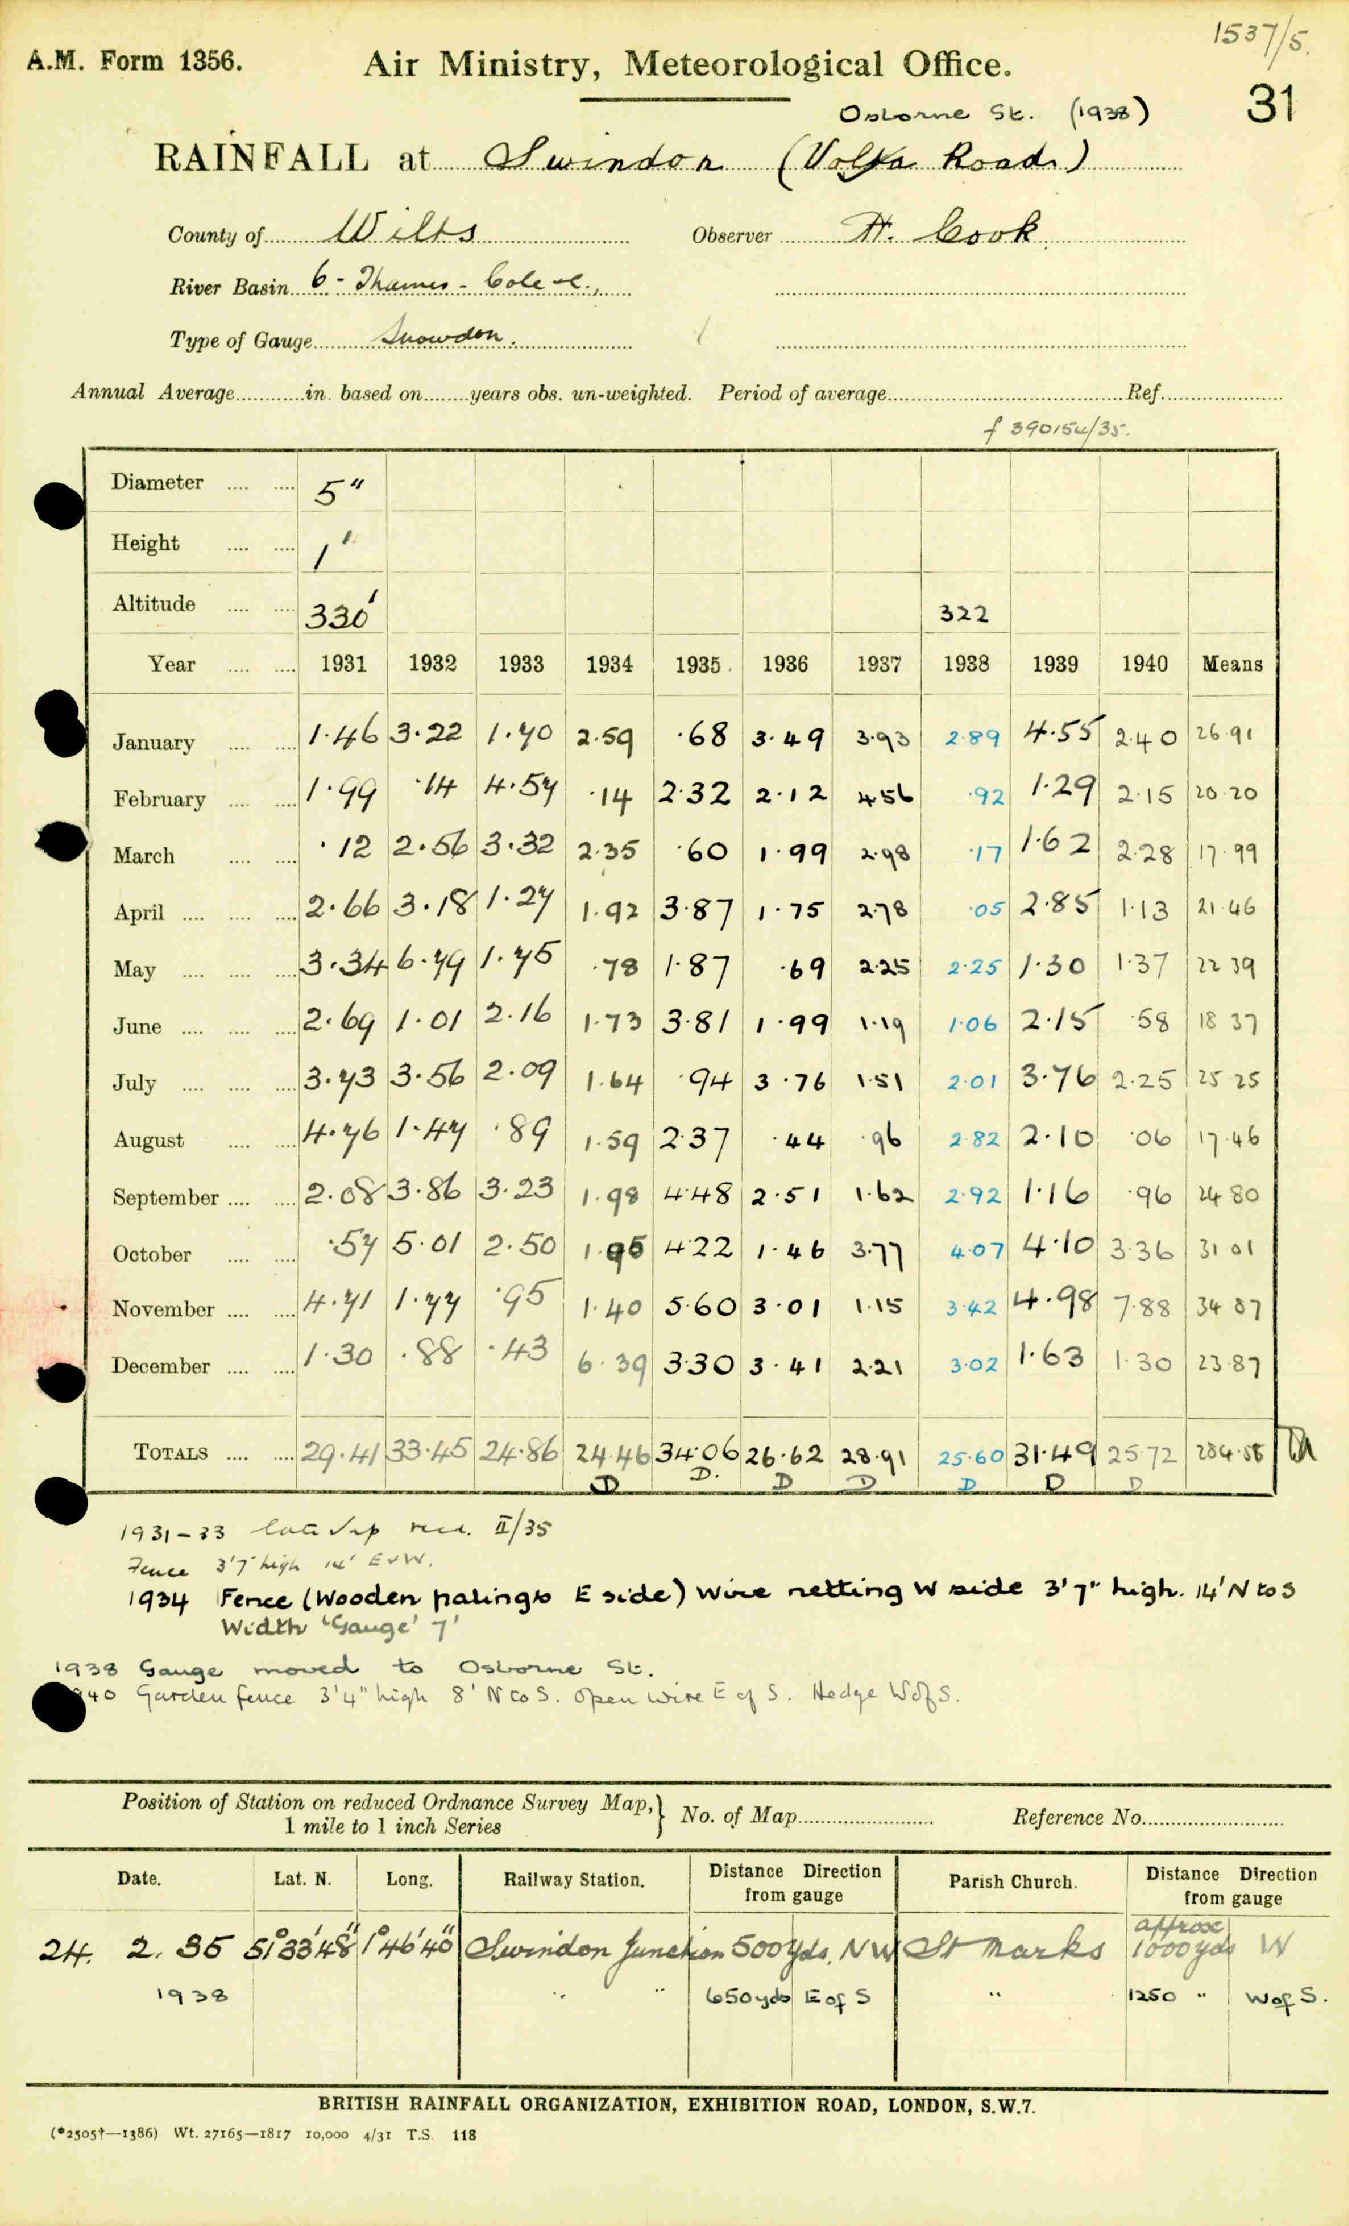 1537/5.
A.M. Form 1356.
Air Ministry, Meteorological Office.
31
Osborne St. (1938)
RAINFALL at Swindon (Volta Road)
County of Wilts Observer H. Cook
River Basin 6 - Thames - Cole
Type of Gauge Snowdon.
Annual Average in. based on years obs. un-weighted. Period of average Ref.
f 390154/35.
Diameter 5"
Height 1"
Altitude 330' 322
Year 1931 1932 1933 1934 1935 1936 1937 1938 1939 1940 Means
January 1.46 3.22 1.70 2.59 .68 3.49 3.93 2.89 4.55 2.40 26.91
February 1.99 .14 4.57 .14 2.32 2.12 4.56 .92 1.29 2.15 20.20
March .12 2.56 3.32 2.35 .60 1.99 2.98 .17 1.62 2.28 17.99
April 2.66 3.18 1.27 1.92 3.87 1.75 2.78 .05 2.85 1.13 21.46
May 3.34 6.79 1.75 .78 1.87 .69 2.25 2.25 1.30 1.37 22 39
June 2.69 1.01 2.16 1.73 3.81 1.99 1.19 1.06 2.15 .58 18 37
July 3.73 3.56 2.09 1.64 .94 3.76 1.51 2.01 3.76 2.25 25 25
August 4.76 1.47 .89 1.59 2.37 .44 .96 2.82 2.10 .06 17.46
September 2.08 3.86 3.23 1.98 4.48 2.51 1.62 2.92 1.16 .96 24 80
October .57 5.01 2.50 1.95 4.22 1.46 3.77 4.07 4.10 3.36 31 01
November 4.71 1.77 .95 1.40 5.60 3.01 1.15 3.42 4.98 7.88 34 87
December 1.30 .88 .43 6.39 3.30 3.41 2.21 3.02 1.63 1.30 23.87
TOTALS 29.41 33.45 24.86 24.46 34.06 26.62 28.91 25.60 31.49 25.72 284.58
D D. D D D D D
1931-33 late rec. II/35
Fence 3'7" high 14' E & W.
1934 Fence (Wooden palings E side) Wire netting W side 3'7" high. 14' N to S
Width 'Gauge' 7'
1938 Gauge moved to Osborne St.
40 Garden fence 3'4" high 8' N to S. open wire E of S. Hedge W of S.
Position of Station on reduced Ordnance Survey Map,
1 mile to 1 inch Series
No. of Map Reference No.
Date. Lat. N. Long. Railway Station. Distance Direction from gauge Parish Church. Distance Direction from gauge
24. 2. 35 51°33'48" 1°46'40" Swindon Junction 500 yds. NW St Marks approx 1000 yds W
1938 " " 650 yds E of S " 1250 " W of S.
BRITISH RAINFALL ORGANIZATION, EXHIBITION ROAD, LONDON, S.W.7.
(*2505†—1386) Wt. 27165—1817 10,000 4/31 T.S. 118